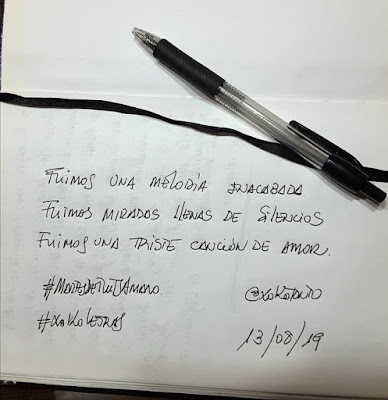 FUIMOS UNA MELODÍA INACABADA
FUIMOS MIRADAS LLENAS DE SILENCIOS
FUIMOS UNA TRISTE CANCIÓN DE AMOR.
#xoKoLETRAS
13/08/19